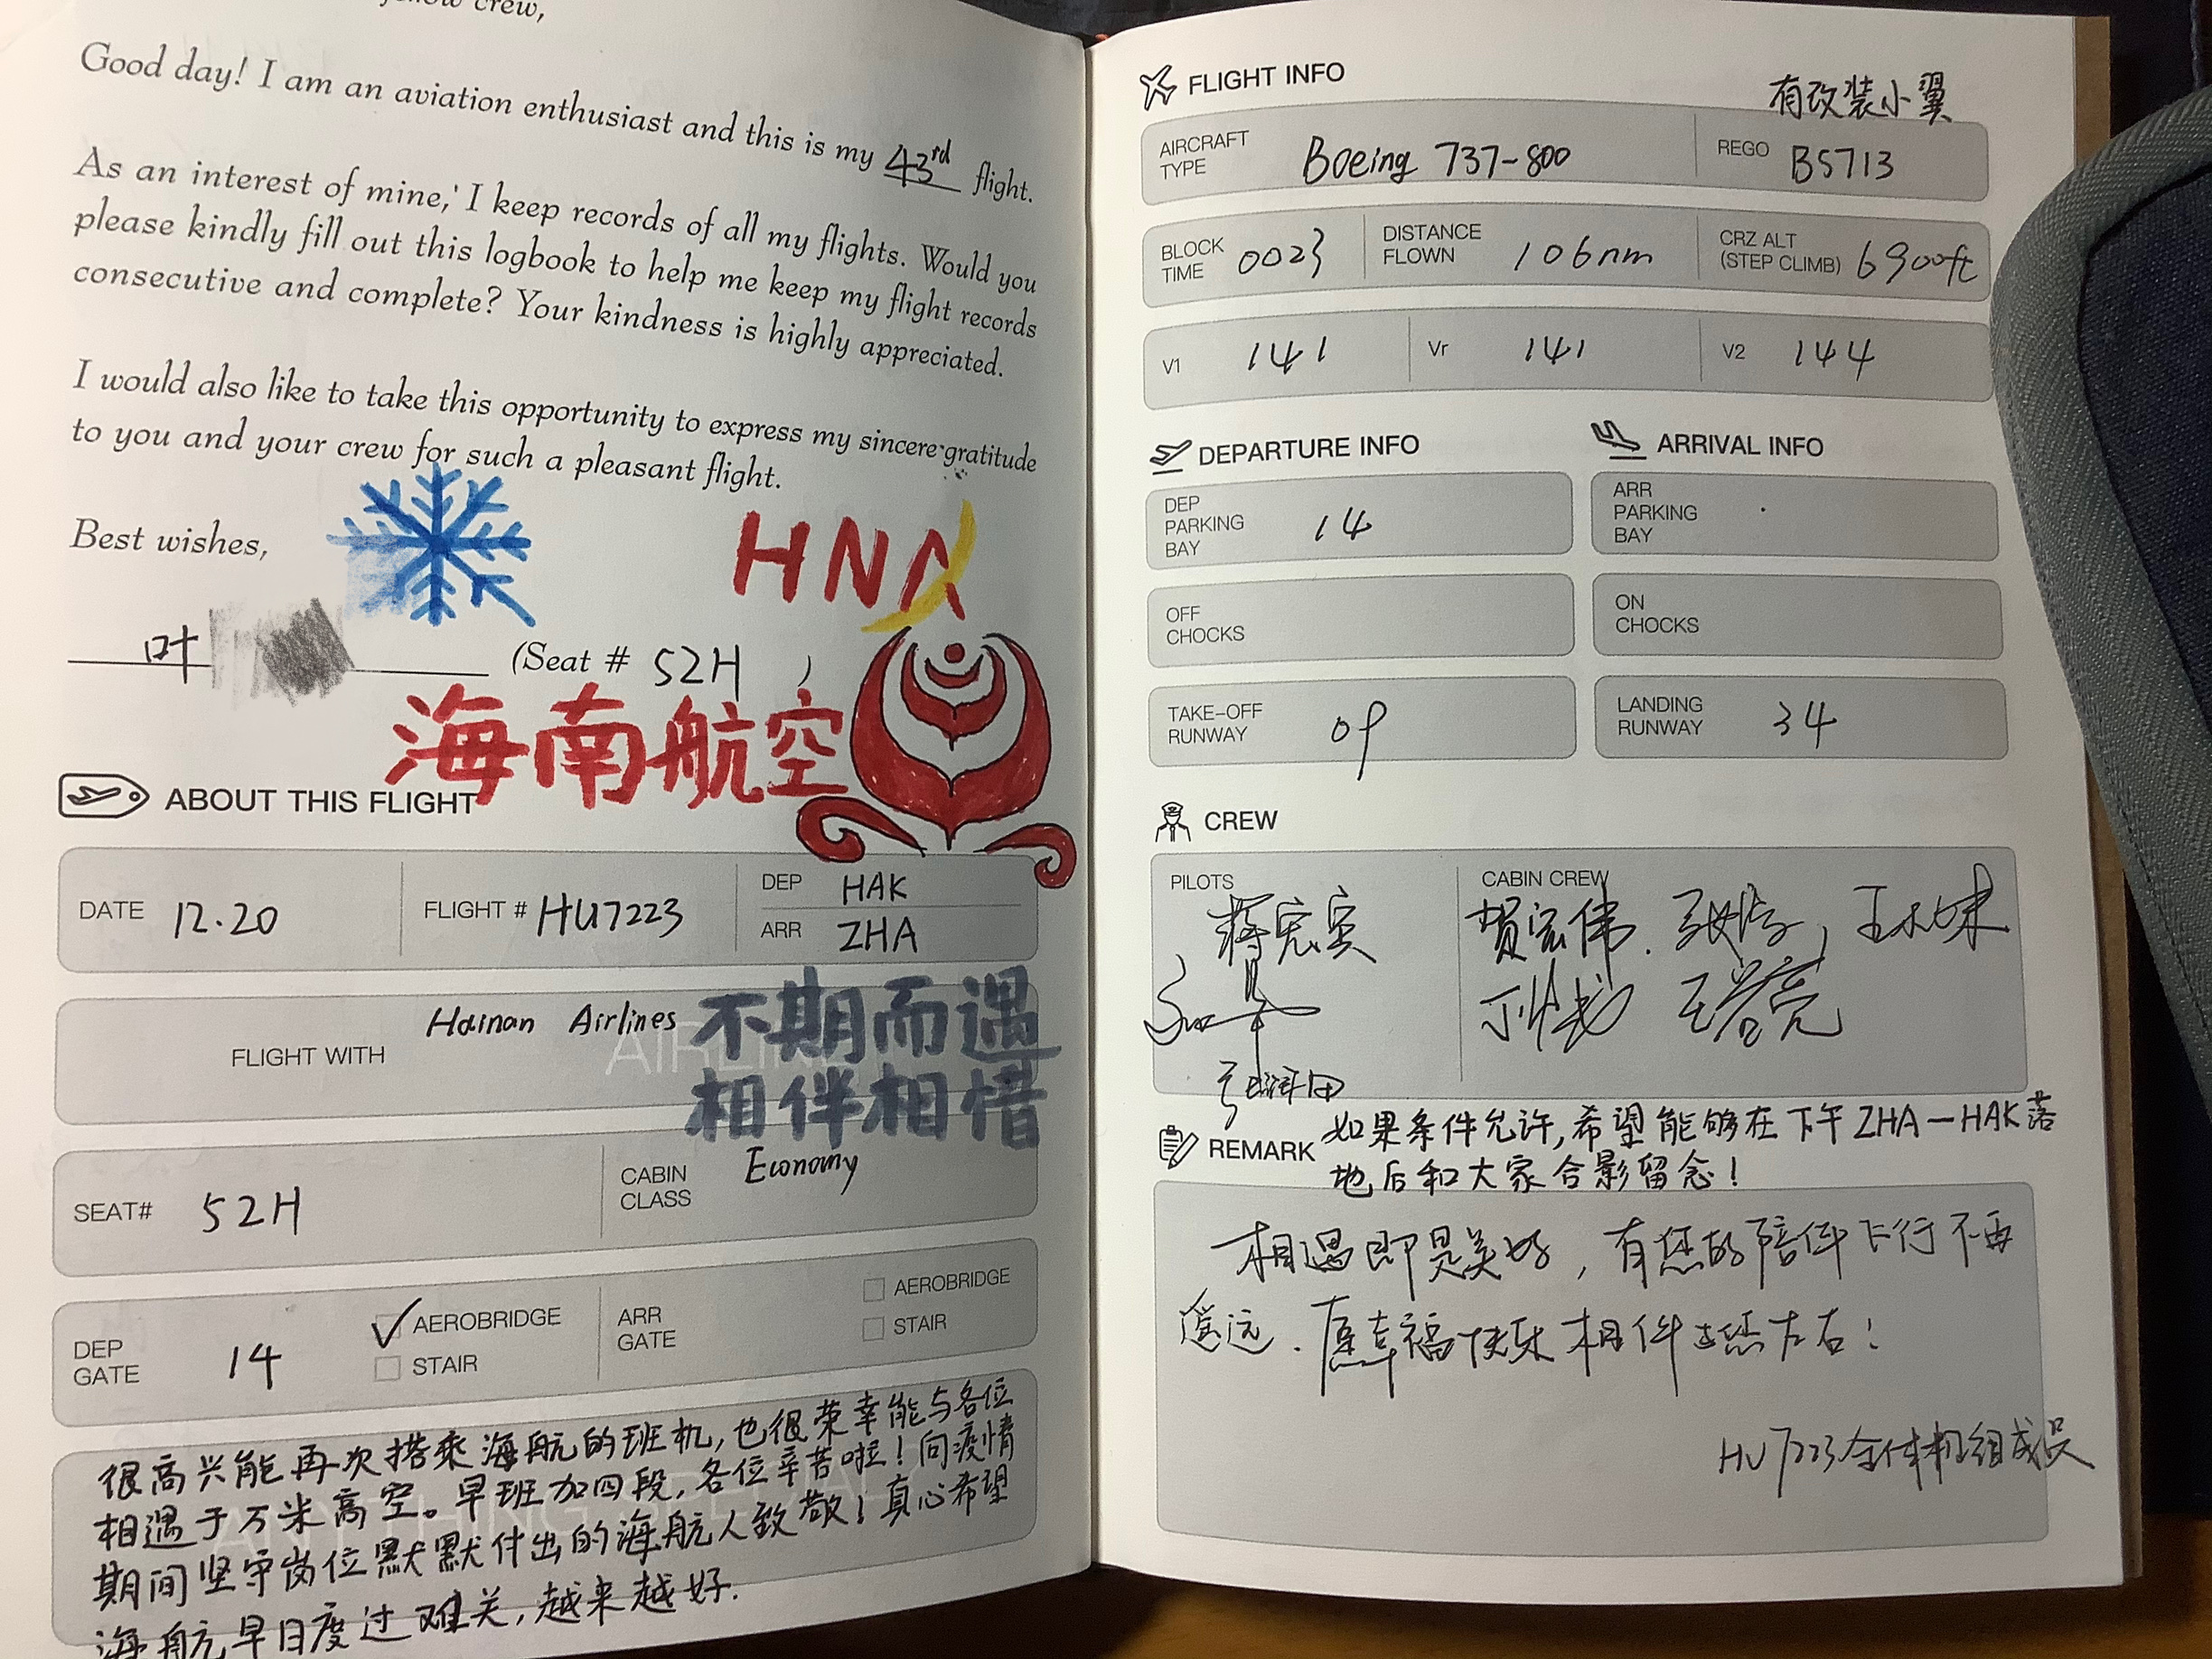 fellow crew,
Good day! I am an aviation enthusiast and this is my 43rd flight.
As an interest of mine, I keep records of all my flights. Would you
please kindly fill out this logbook to help me keep my flight records
consecutive and complete? Your kindness is highly appreciated.
I would also like to take this opportunity to express my sincere gratitude
to you and your crew for such a pleasant flight.
Best wishes,
HNA
叶 (Seat # 52H )
海南航空
ABOUT THIS FLIGHT
DATE 12.20 FLIGHT # HU7223 DEP HAK
ARR ZHA
FLIGHT WITH Hainan Airlines
不期而遇
相伴相惜
SEAT# 52H CABIN CLASS Economy
DEP GATE 14 ✓ AEROBRIDGE STAIR ARR GATE AEROBRIDGE STAIR
很高兴能再次搭乘海航的班机,也很荣幸能与各位
相遇于万米高空。早班加四段,各位辛苦啦!向疫情
期间坚守岗位默默付出的海航人致敬!真心希望
海航早日度过难关,越来越好.
FLIGHT INFO
有改装小翼
AIRCRAFT TYPE Boeing 737-800 REGO B5713
BLOCK TIME 0023 DISTANCE FLOWN 106nm CRZ ALT (STEP CLIMB) 6900ft
V1 141 Vr 141 V2 144
DEPARTURE INFO ARRIVAL INFO
DEP PARKING BAY 14 ARR PARKING BAY
OFF CHOCKS ON CHOCKS
TAKE-OFF RUNWAY 09 LANDING RUNWAY 34
CREW
PILOTS CABIN CREW
贺宏伟
REMARK 如果条件允许,希望能够在下午ZHA-HAK落
地后和大家合影留念!
相遇即是美好,有您的陪伴飞行不再
遥远.愿幸福快乐相伴您左右!
HU7223全体机组成员